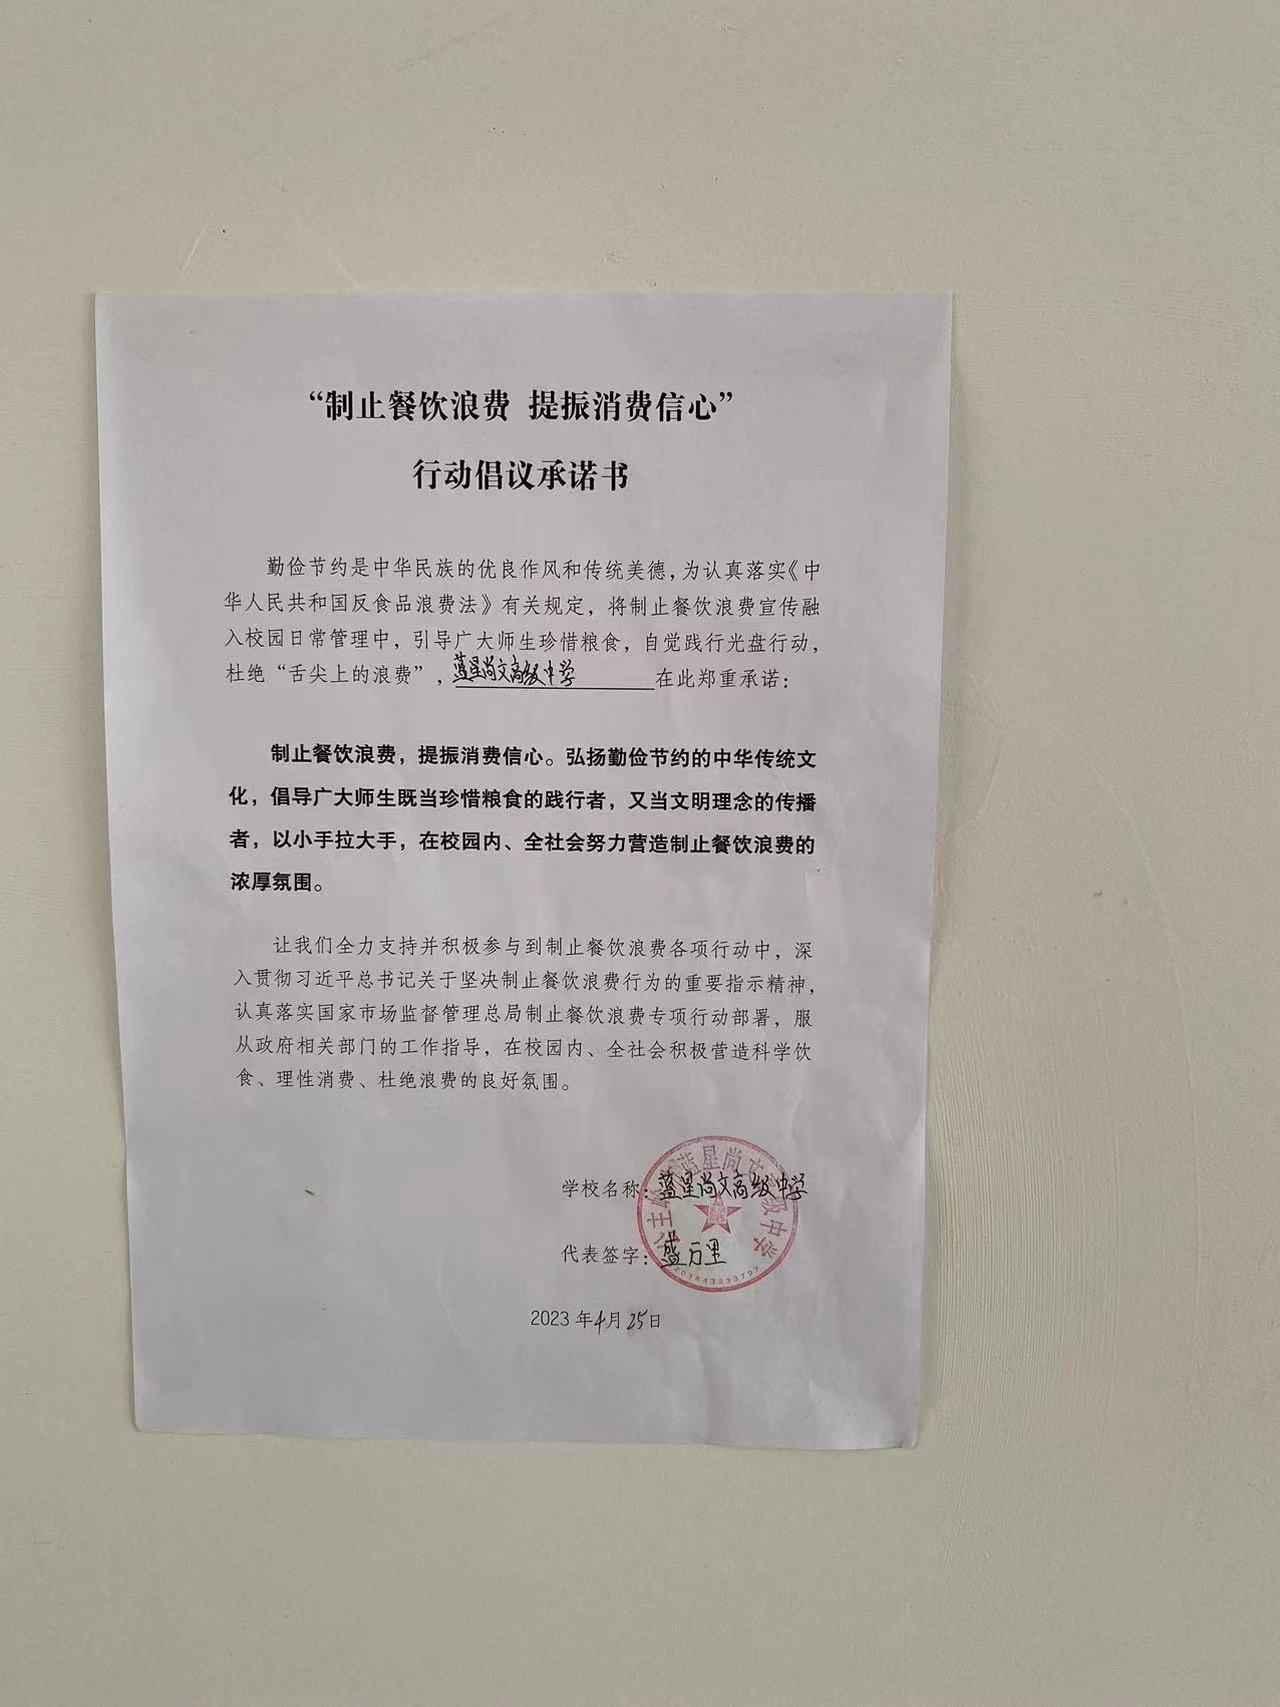 “制止餐饮浪费 提振消费信心”
行动倡议承诺书
勤俭节约是中华民族的优良作风和传统美德，为认真落实《中
华人民共和国反食品浪费法》有关规定，将制止餐饮浪费宣传融
入校园日常管理中，引导广大师生珍惜粮食，自觉践行光盘行动，
杜绝“舌尖上的浪费”，蓝星尚文高级中学在此郑重承诺：
制止餐饮浪费，提振消费信心。弘扬勤俭节约的中华传统文
化，倡导广大师生既当珍惜粮食的践行者，又当文明理念的传播
者，以小手拉大手，在校园内、全社会努力营造制止餐饮浪费的
浓厚氛围。
让我们全力支持并积极参与到制止餐饮浪费各项行动中，深
入贯彻习近平总书记关于坚决制止餐饮浪费行为的重要指示精神，
认真落实国家市场监督管理总局制止餐饮浪费专项行动部署，服
从政府相关部门的工作指导，在校园内、全社会积极营造科学饮
食、理性消费、杜绝浪费的良好氛围。
学校名称：蓝星尚文高级中学
代表签字：盛万里
2023 年4月25日
蓝星尚文 级中学